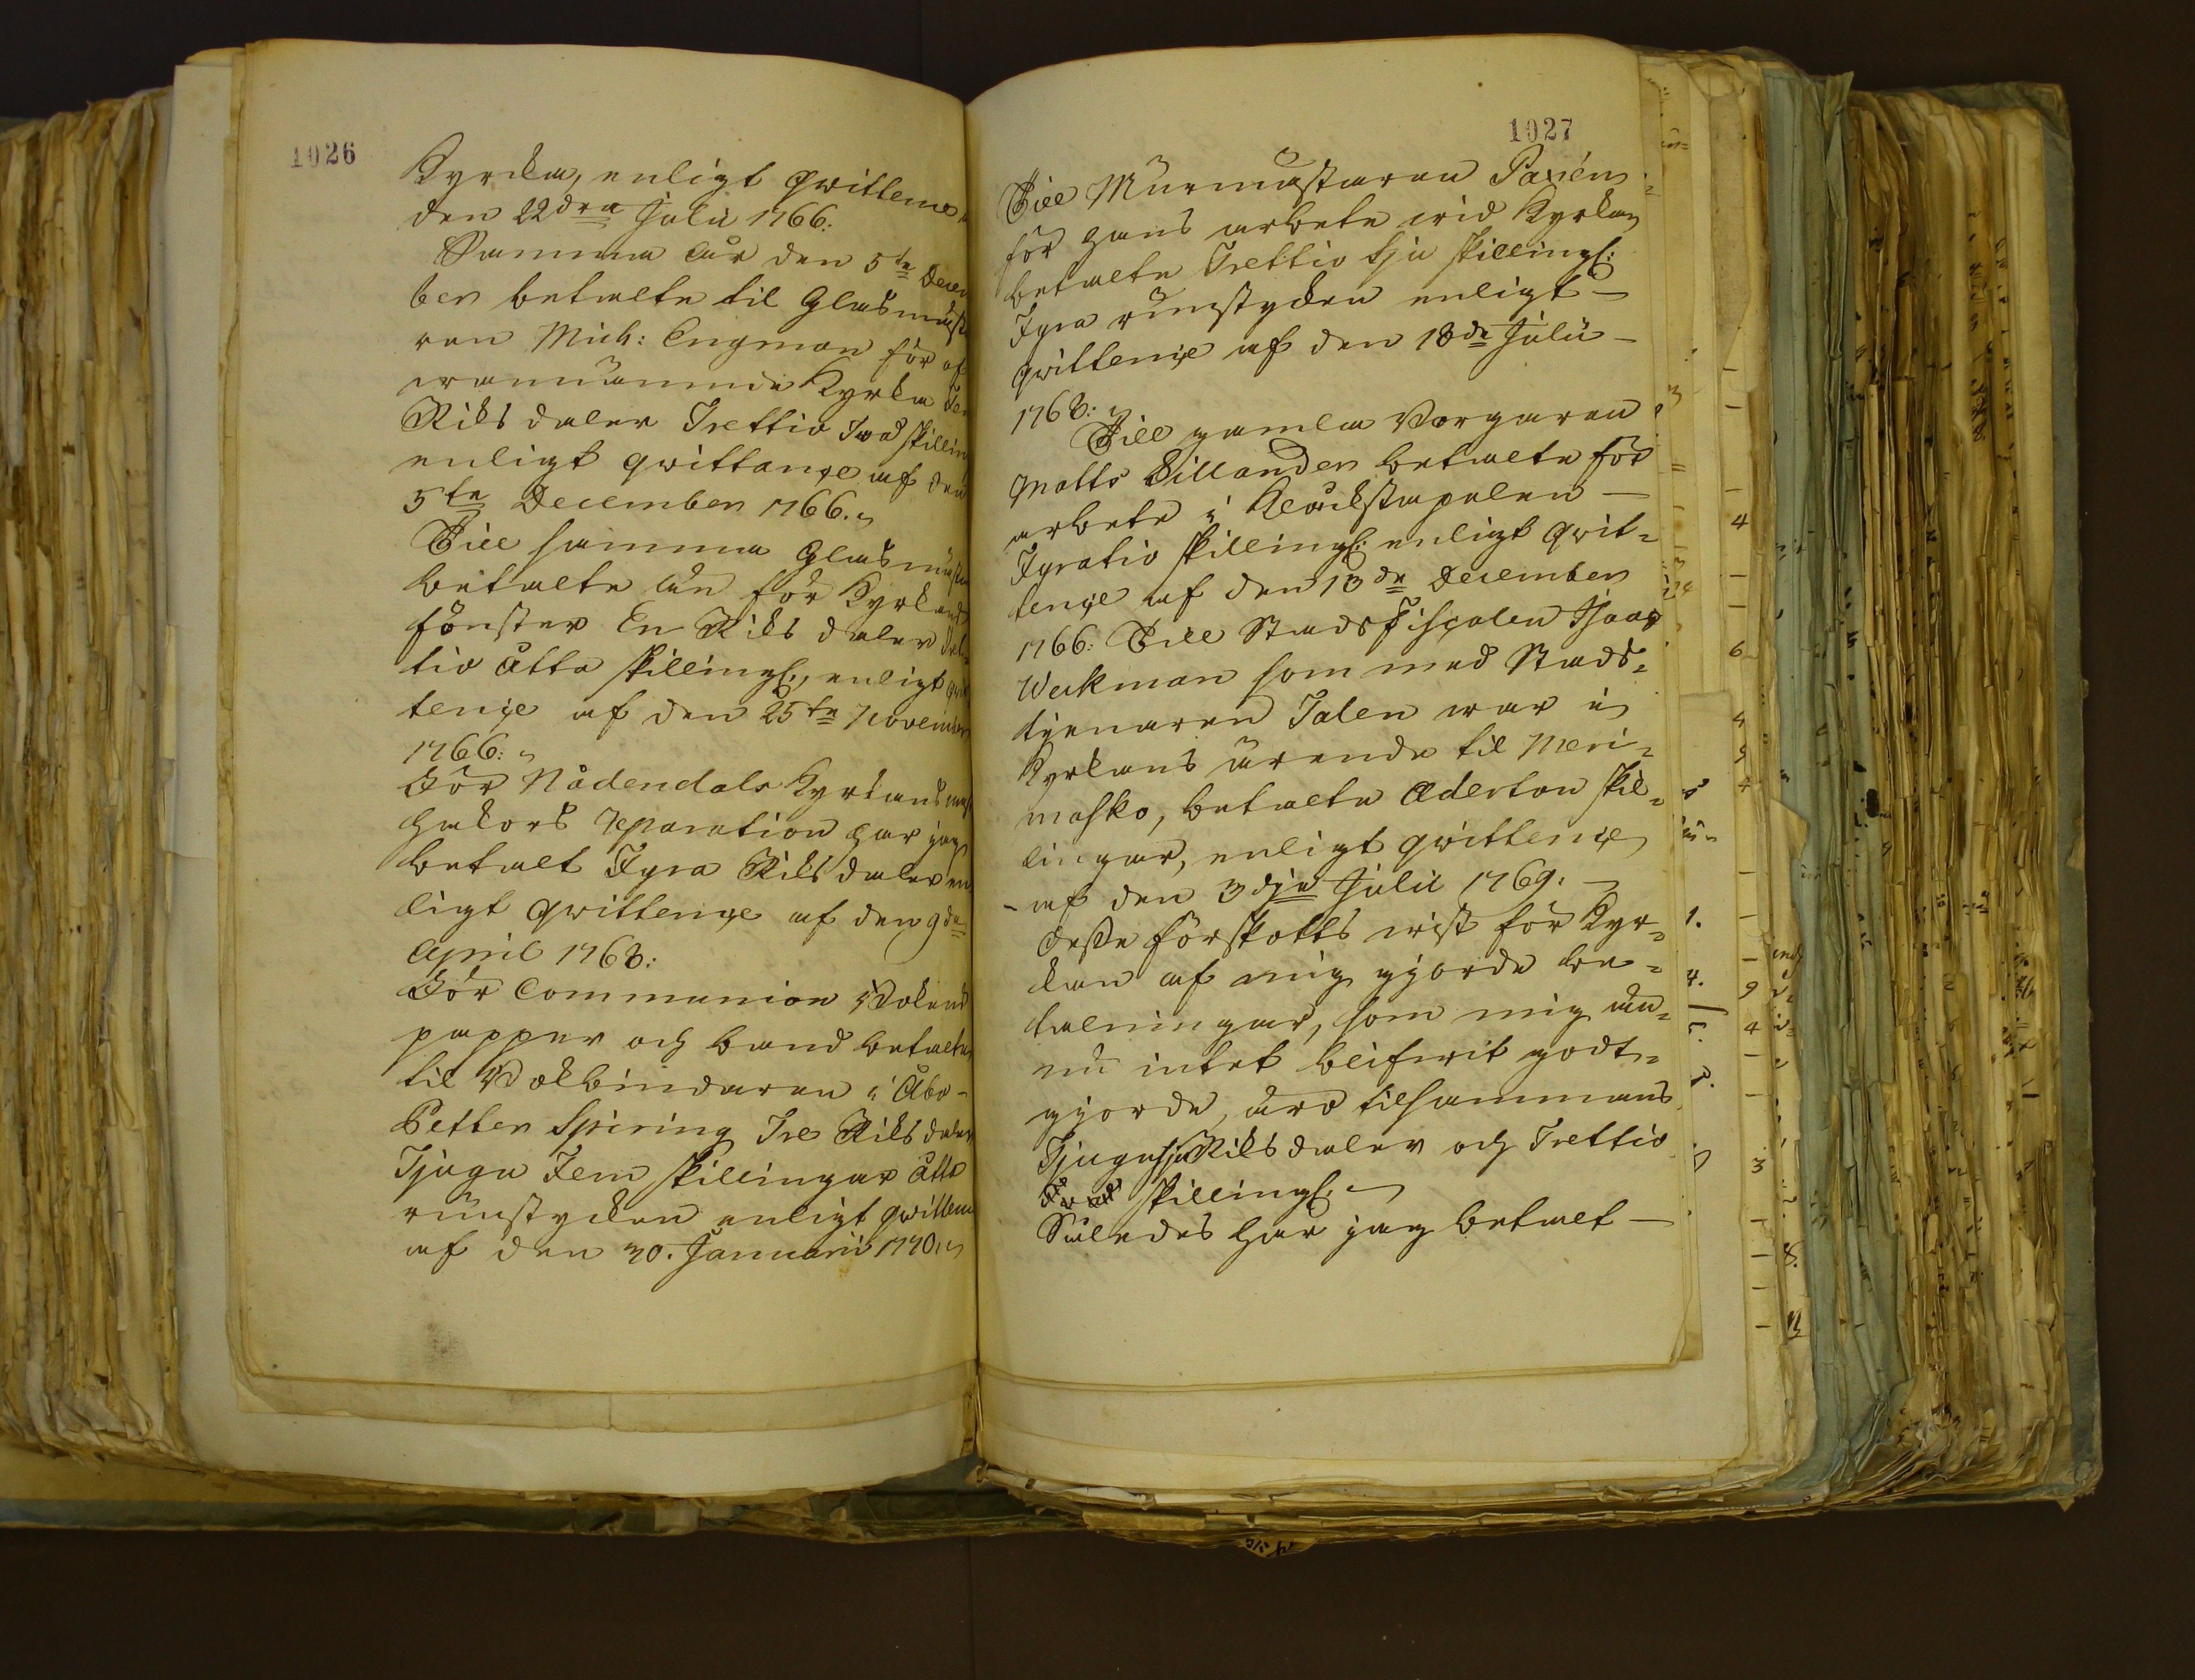 1026
Kyrcka, enligt qwittence
den 22dra Julii 1766.
Samma År den 5te Decem
ber betalte til Glasmäst
ren Mich: Engman för of
wannämnde Kyrka Fem
Riksdaler Trettio Twå skilling
enligt qwittançe af den
5te December 1766.
Till samma Glasmästa
betalte än för Kyrkans
fönster En Riksdaler
tio åtta skilling:, enligt qwit
tençe af den 25te November
1766:
För Nådendals Kyrkans
hakors Reparation har jag
betalt Fyra Riksdaler en
ligt qwittençe af den 9de
April 1768:
För Communion Bokens
papper och band betalte
til Bokbindaren i Åbo
Petter Spiring Tre Riksdaler
Tjugu Fem skillingar åtta
runstycken enligt qwitten
af den 30. Januarii 1770.
1027
Till Murmästaren Paxén
för hans arbete wid Kyrkan
betalte Trettio Sju skilling:
Fyra runstycken enligt
qwittençe af den 18de Julii
1768:
Till gamla Borgaren
Matts Sillander betalte för
arbete i Klockstapelen
Fyratio skilling: enligt qwit-
tençe af den 13de December
1766: Till StadsFiscalen Isaac
Weckman som med Stads-
tjenaren Talen war i
Kyrkans ärende til Meri-
masko, betalte Aderton skil-
lingar, enligt qwittençe
af den 3dje Julii 1769.
Desse förskotts wist för Kyr-
kan af mig gjorde be-
talningar, som mig än-
nu intet blifwit godt-
gjorde, äro tilsammans
Tjugusju Riksdaler och Trettio
skilling:
Således har jag betalt